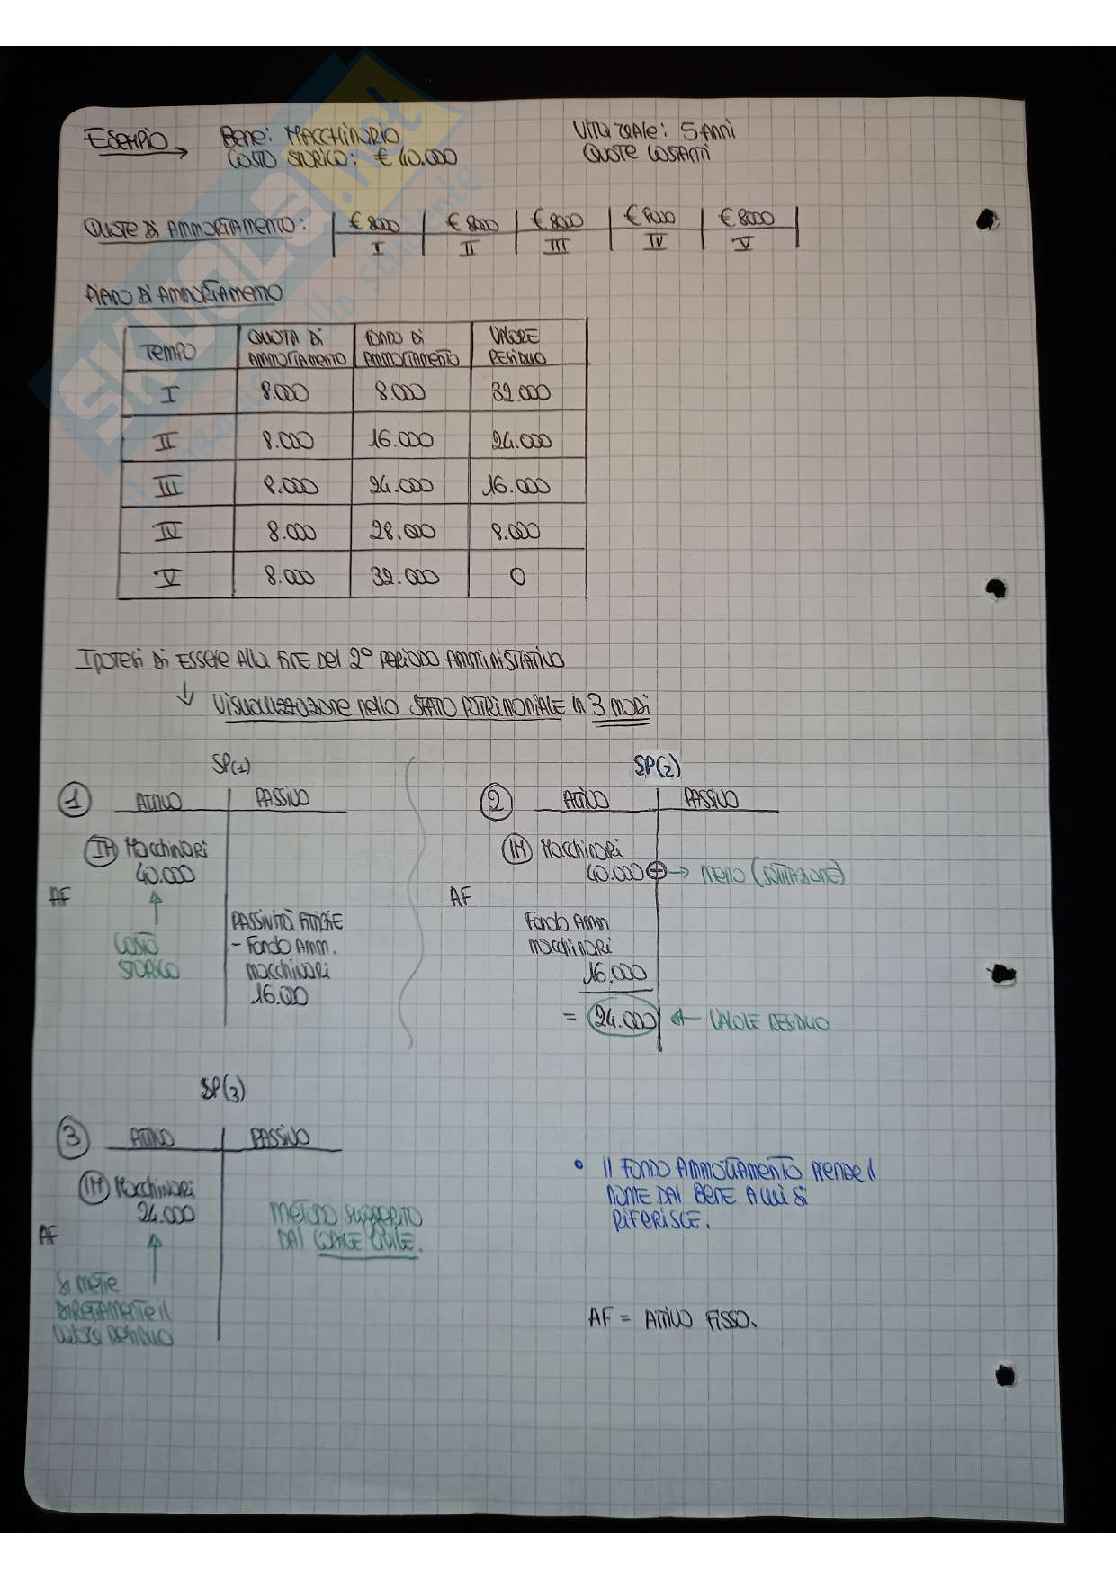 ESEMPIO → Bene: MACCHINARIO Vita reale: 5 Anni
COSTO STORICO: € 40.000 QUOTE COSTANTI
QUOTE DI AMMORTAMENTO: € 8000 € 8000 € 8000 € 8000 € 8000
I II III IV V
PIANO DI AMMORTAMENTO
TEMPO QUOTA DI AMMORTAMENTO FONDO DI AMMORTAMENTO VALORE RESIDUO
I 8.000 8.000 32.000
II 8.000 16.000 24.000
III 8.000 24.000 16.000
IV 8.000 28.000 8.000
V 8.000 32.000 0
IPOTESI DI ESSERE ALLA FINE DEL 2° PERIODO AMMINISTRATIVO
↓ VISUALIZZAZIONE nello STATO PATRIMONIALE IN 3 MODI
SP(1)
1 ATTIVO PASSIVO
IM Macchinari
40.000
AF
COSTO
STORICO
PASSIVITÀ FITTIZIE
- Fondo Amm.
macchinari
16.000
SP(2)
2 ATTIVO PASSIVO
IM Macchinari
40.000 → MENO (SOTTRAZIONE)
AF
Fondo Amm
macchinari
16.000
= 24.000 ← VALORE RESIDUO
SP(3)
3 ATTIVO PASSIVO
IM Macchinari
24.000
AF
SI METTE
DIRETTAMENTE il
VALORE RESIDUO
METODO SUGGERITO
DAL CODICE CIVILE.
• Il FONDO AMMORTAMENTO PRENDE il
NOME DAL BENE A CUI SI
RIFERISCE.
AF = ATTIVO FISSO.
SKUOLA.net